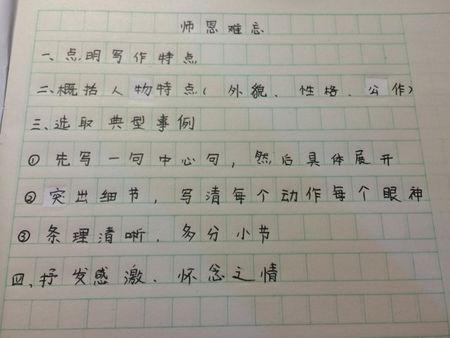 师恩难忘
一、点明写作特点
二、概括人物特点(外貌、性格、公作)
三、选取典型事例
①先写一句中心句,然后具体展开
②突出细节,写清每个动作每个眼神
③条理清晰,多分小节
四、抒发感激、怀念之情